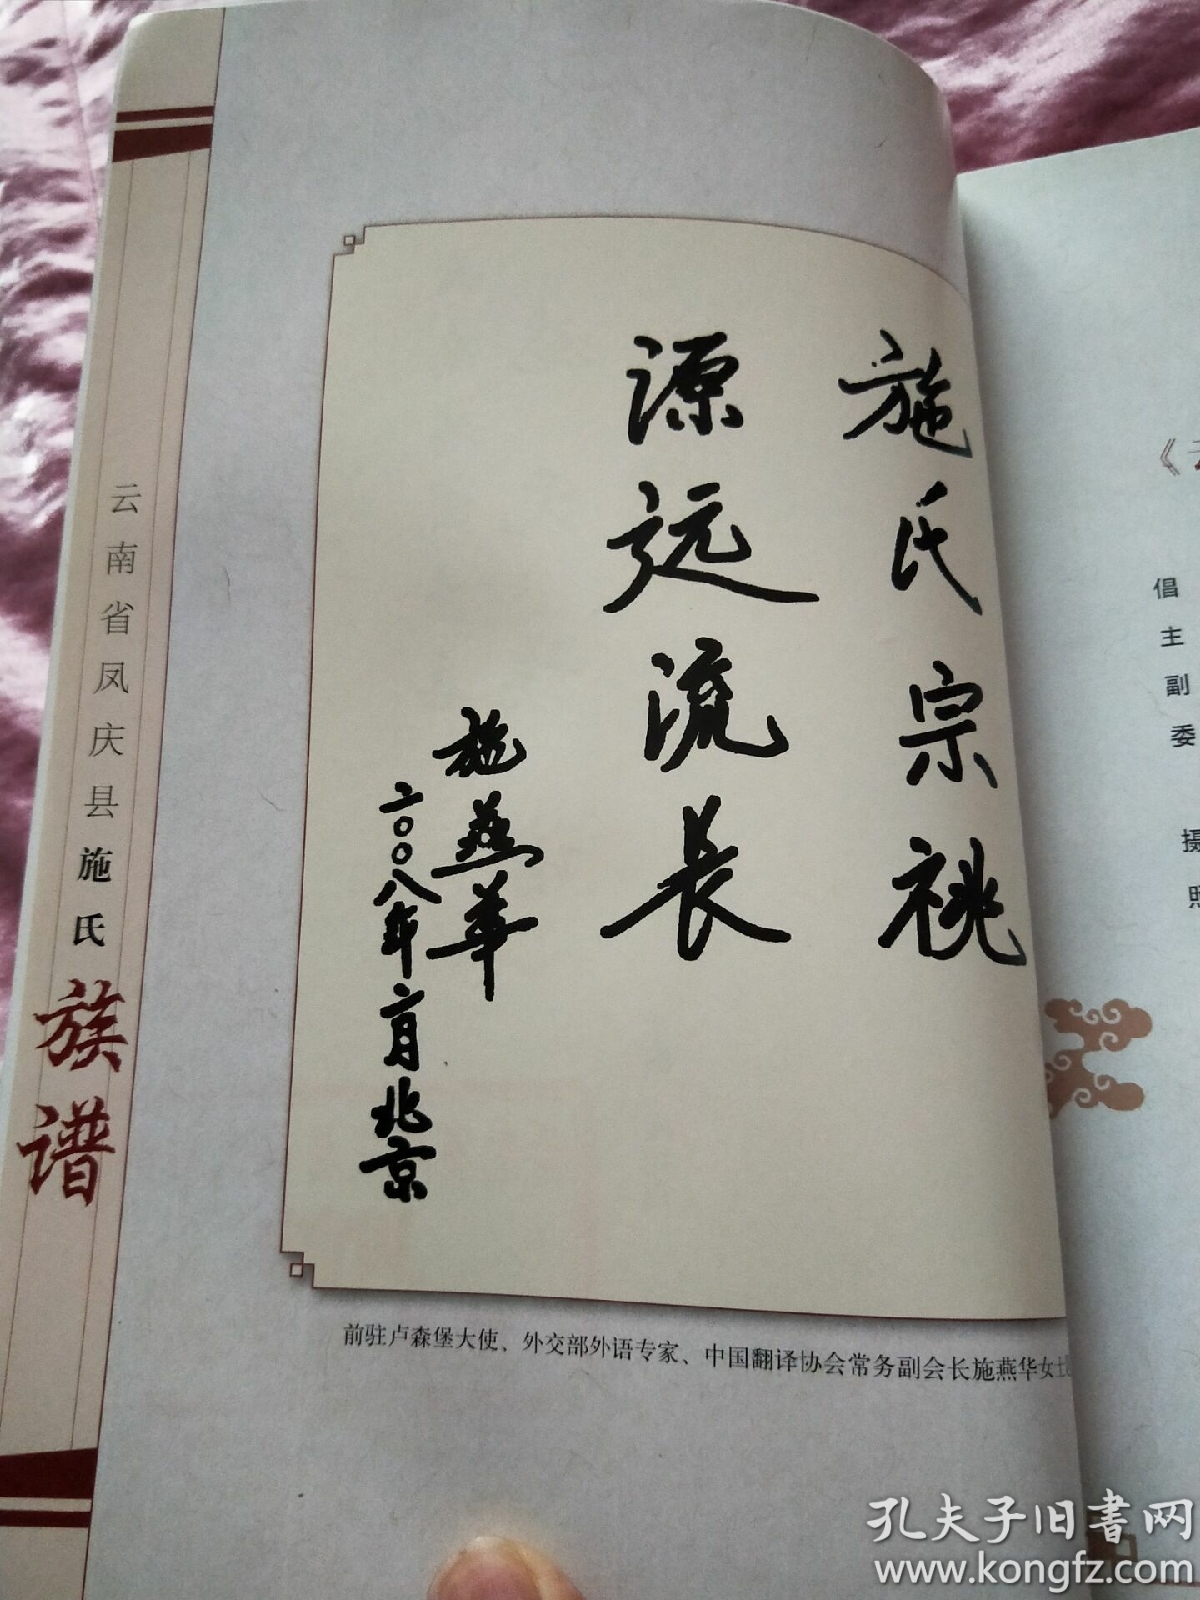 云南省凤庆县施氏族谱
施氏宗祧
源远流长
施燕华
二〇〇八年二月北京
前驻卢森堡大使、外交部外语专家、中国翻译协会常务副会长施燕华女士
《
倡
主
副
委
摄
孔夫子旧书网
www.kongfz.com